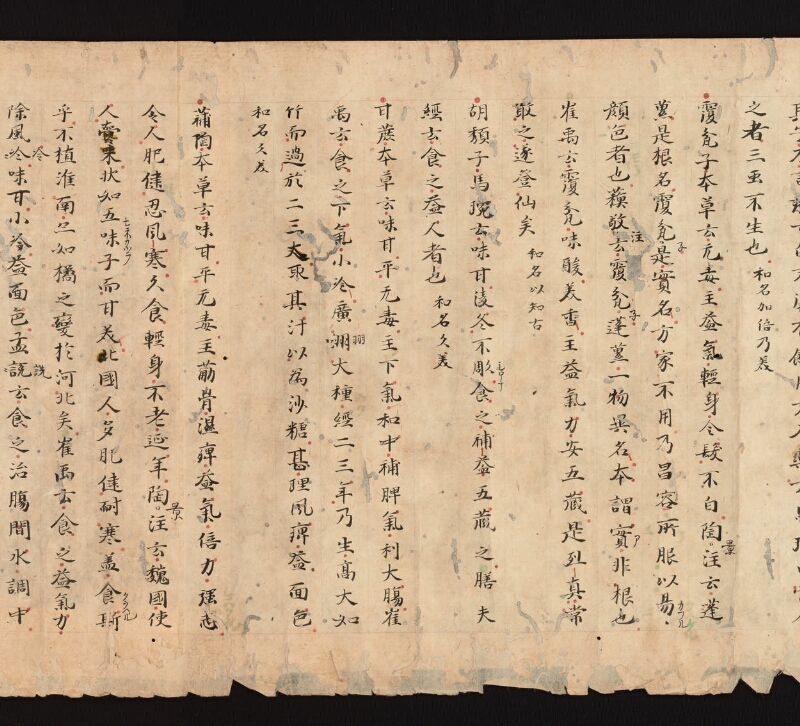 之者三虫不生也 和名加倍乃美
覆瓫子本草云无毒主益氣輕身令髮不白陶景注云蓬
虆是根名覆瓫子是實名方家不用乃昌容所服以易
顔色者也蘓敬注云覆瓫子蓬虆一物異名本謂實非根也
崔禹云覆瓫味酸美香主益氣力安五藏是烈真常
敢之遂登仙矣 和名以知古
胡頽子馬琬云味甘淩冬不彫食之補益五藏之膳夫
經云食之益人者也 和名久美
甘蔗本草云味甘平无毒主下氣和中補脾氣利大腸崔
禹云食之下氣小冷廣州大種經二三年乃生高大如
竹而過於二三丈取其汁以為沙糖甚理風痺益面色
和名久美
蒲陶本草云味甘平无毒主筋骨濕痺益氣倍力强志
令人肥健忍風寒久食輕身不老延年陶景注云魏國使
人賷來狀如五味子而甘美北國人多肥健耐寒盖食斯
乎不植淮南亦如橘之變於河北矣崔禹云食之益氣力
除風冷味甘小冷益面色孟詵云食之治腸間水調中